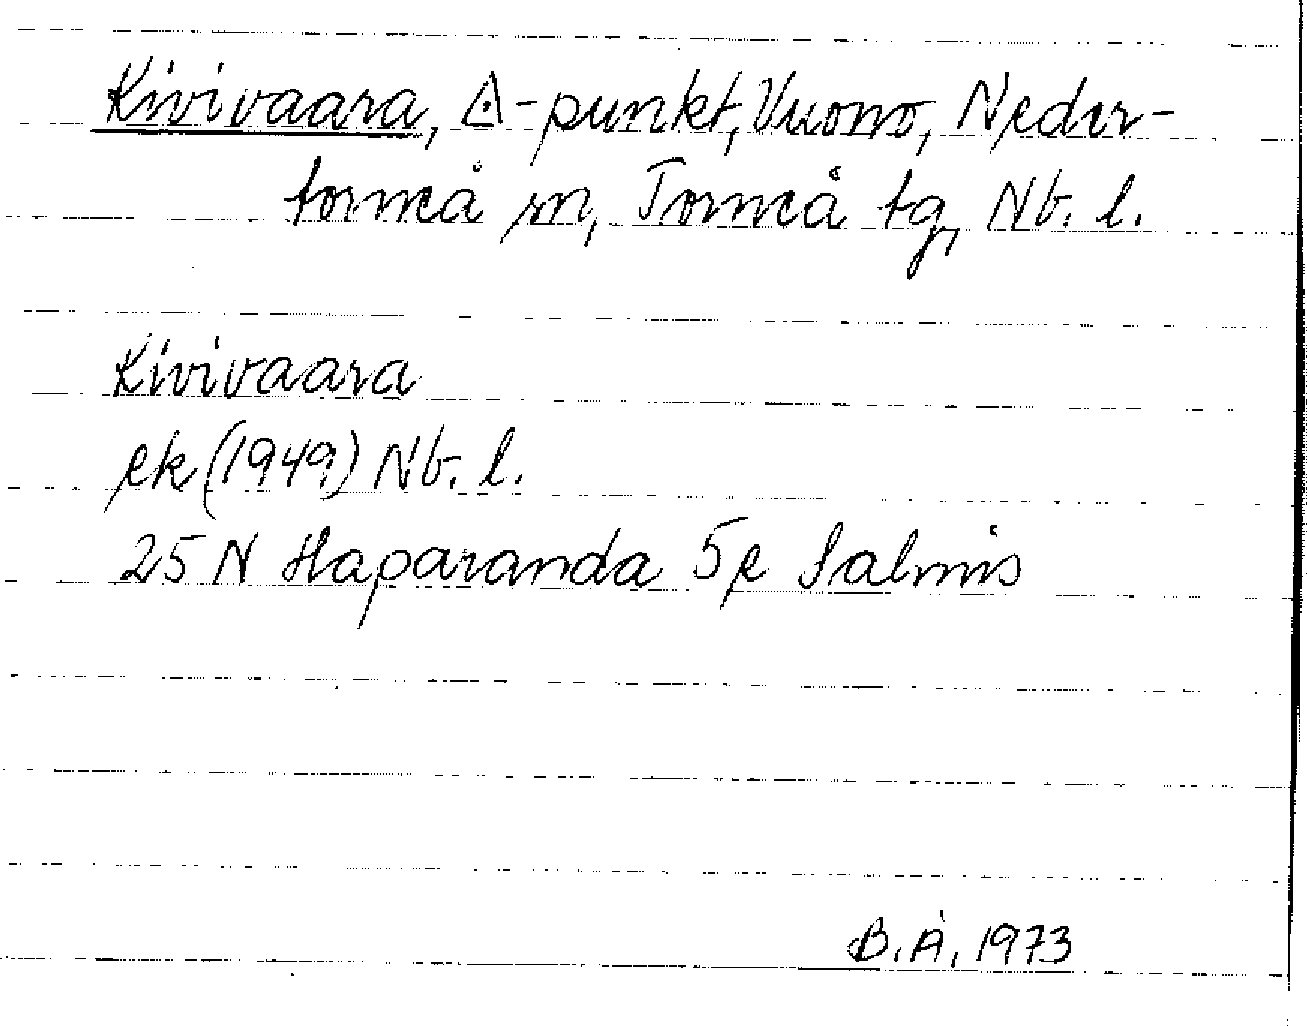 Kivivaara, ◬-punkt, Vuono, Neder-
torneå sn, Torneå tg, Nb. l.
Kivivaara
ek (1949) Nb. l.
25 N Haparanda 5 e Salmis
B. Å, 1973